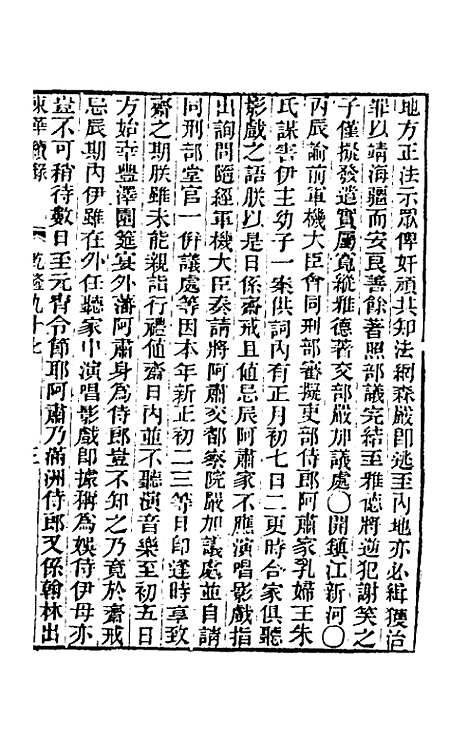 地方正法示眾俾奸頑共知法網森嚴即逃至內地亦必緝獲治
罪以靖海疆而安良善餘著照部議完結至雅德將逆犯謝笑之
子僅擬發遣實屬寬縱雅德著交部嚴加議處○開鎮江新河○
丙辰諭前軍機大臣會同刑部審擬吏部侍郎阿肅家乳婦王朱
氏謀害伊主幼子一案供詞內有正月初七日二更時合家俱聽
影戲之語朕以是日係齋戒且値忌辰阿肅家不應演唱影戲指
出詢問隨經軍機大臣奏請將阿肅交都察院嚴加議處並自請
同刑部堂官一併議處等因本年新正初二三等日即逢時享致
齋之期朕雖未能親詣行禮値齋日內並不聽演音樂至初五日
方始幸豐澤園筵宴外藩阿肅身為侍郎豈不知之乃竟於齋戒
忌辰期內伊雖在外任聽家中演唱影戲即據稱為娛侍伊母亦
豈不可稍待數日至元宵令節耶阿肅乃滿洲侍郎又係翰林出
東華續錄 乾隆九十七 三